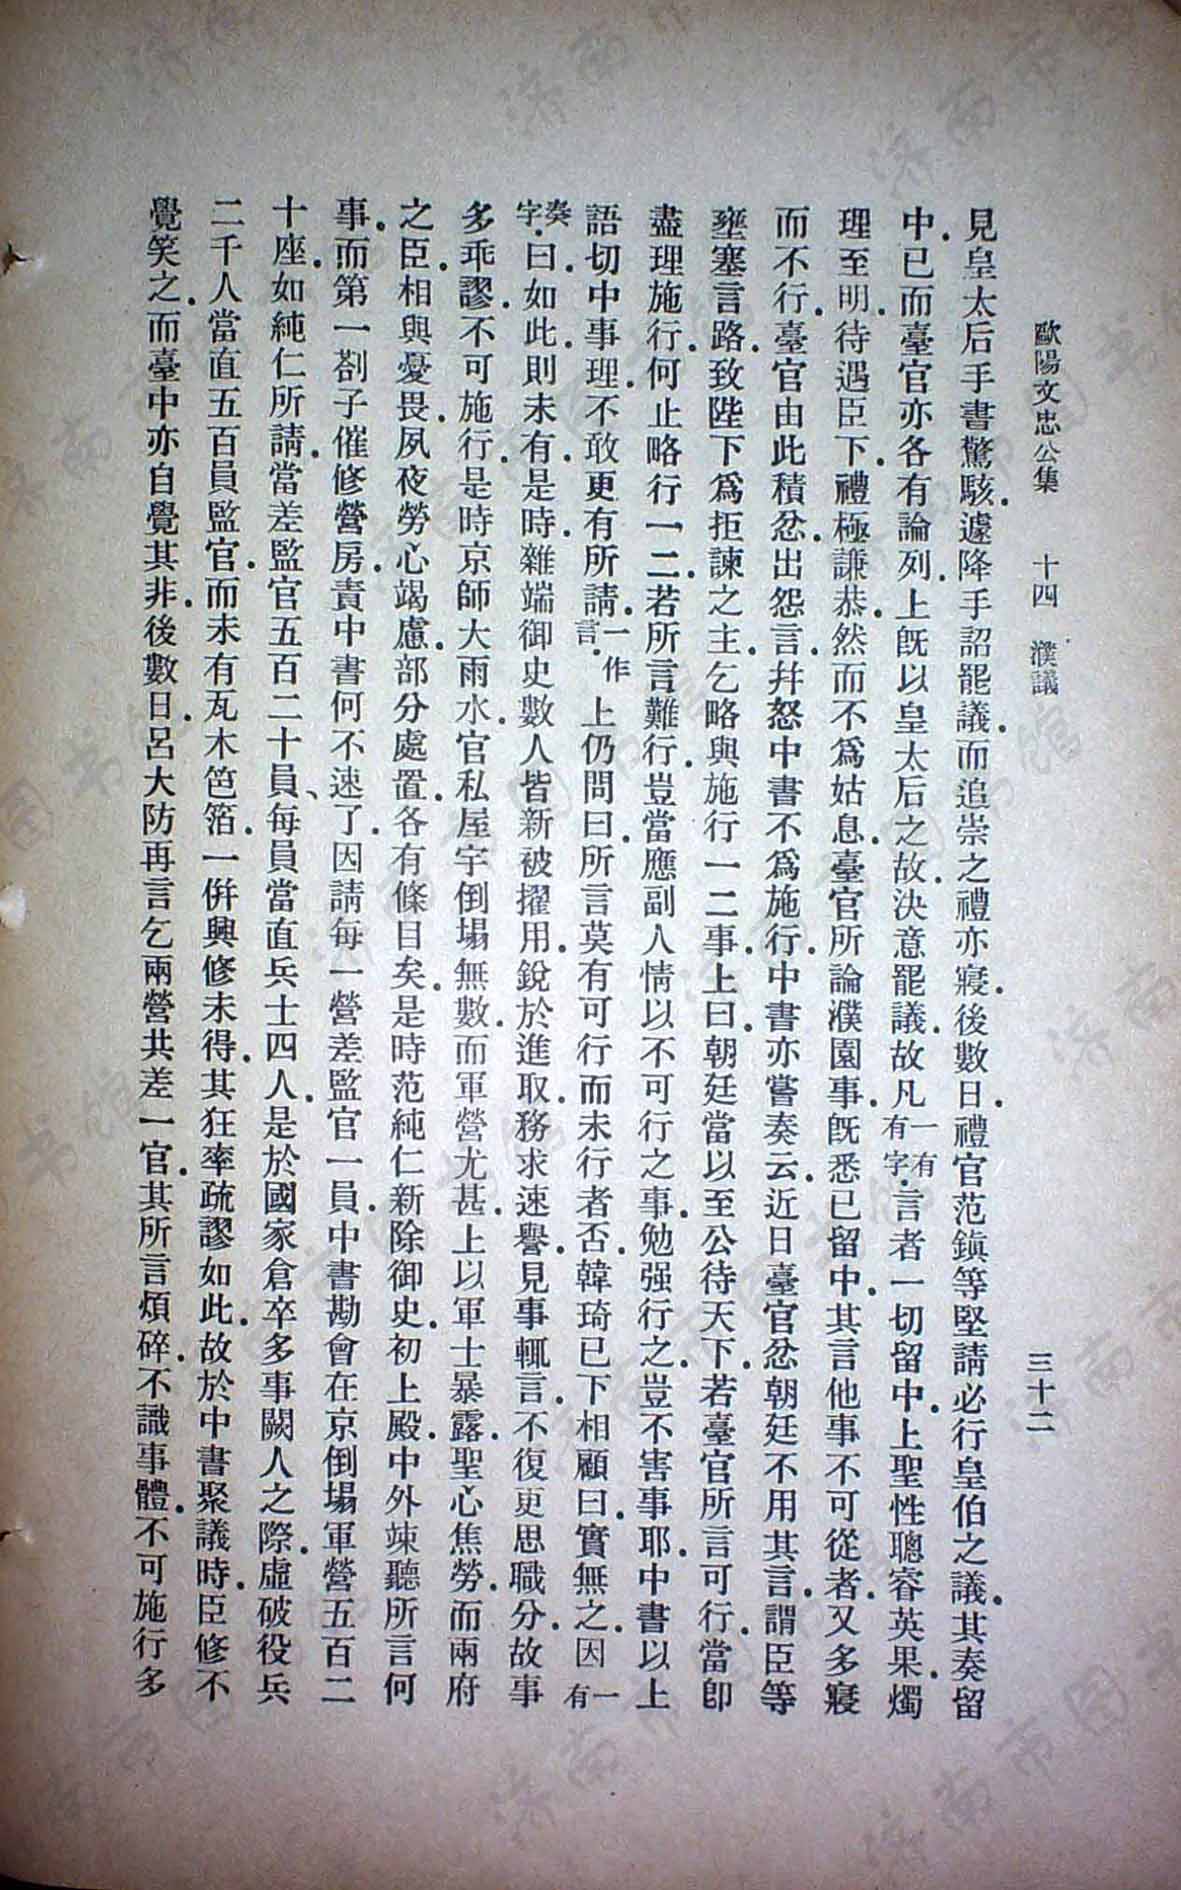 歐陽文忠公集　十四　濮議　三十二
見皇太后手書驚駭.遽降手詔罷議.而追崇之禮亦寢.後數日.禮官范鎭等堅請必行皇伯之議.其奏留
中.已而臺官亦各有論列.上旣以皇太后之故.決意罷議.故凡一有有字.言者一切留中.上聖性聰睿英果.燭
理至明.待遇臣下.禮極謙恭.然而不爲姑息.臺官所論濮園事.旣悉已留中.其言他事不可從者.又多寢
而不行.臺官由此積忿.出怨言.幷怒中書不爲施行.中書亦嘗奏云.近日臺官忿朝廷不用其言.謂臣等
壅塞言路.致陛下爲拒諫之主.乞略與施行一二事.上曰.朝廷當以至公待天下.若臺官所言可行.當卽
盡理施行.何止略行一二.若所言難行.豈當應副人情.以不可行之事.勉强行之.豈不害事耶.中書以上
語切中事理.不敢更有所請.一作言.上仍問曰.所言莫有可行而未行者否.韓琦已下相顧曰.實無之.因一有
奏字.曰.如此.則未有.是時.雜端御史數人.皆新被擢用.銳於進取.務求速譽.見事輒言.不復更思職分.故事
多乖謬.不可施行.是時京師大雨水.官私屋宇倒塌無數.而軍營尤甚.上以軍士暴露.聖心焦勞.而兩府
之臣.相與憂畏.夙夜勞心竭慮.部分處置.各有條目矣.是時范純仁新除御史.初上殿.中外竦聽所言何
事.而第一劄子催修營房.責中書何不速了.因請每一營差監官一員.中書勘會在京倒塌軍營五百二
十座.如純仁所請.當差監官五百二十員.每員當直兵士四人.是於國家倉卒多事闕人之際.虛破役兵
二千人當直五百員監官.而未有瓦木笆箔.一倂興修未得.其狂率疏謬如此.故於中書聚議時.臣修不
覺笑之.而臺中亦自覺其非.後數日.呂大防再言乞兩營共差一官.其所言煩碎.不識事體.不可施行多